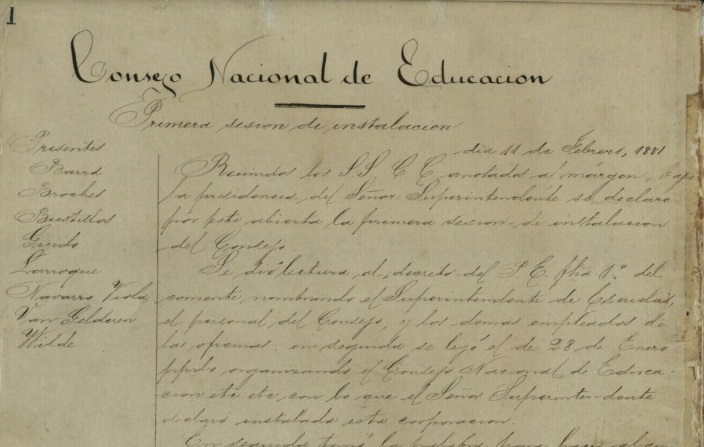 1
Consejo Nacional de Educacion
Primera sesion de instalacion
dia 11 de Febrero, 1881
Presentes
Barra
Broches
Bustillos
Guido
Larroque
Navarro Viola
Van Gelderen
Wilde
Reunidos los S.S. C C anotados al márgen, bajo
la presidencia del Señor Superintendente se declaró
por este abierta la primera sesion de instalacion
del Consejo
Se dió lectura al decreto del P. E. fha 1º del
corriente nombrando el Superintendente de Escuelas,
el personal del Consejo, y los demás empleados de
las oficinas: en seguida se leyó el de 28 de Enero
ppdo organizando el Consejo Nacional de Educa-
cion etc etc con lo que el Señor Superintendente
declaró instalada esta corporacion.
En seguida tomó la palabra para hacer